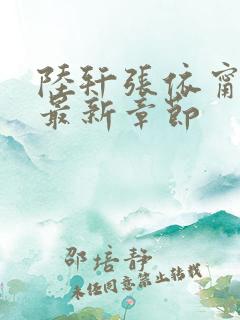 陸轩張依甯
最新章節
邵培静
未任同意禁止转载